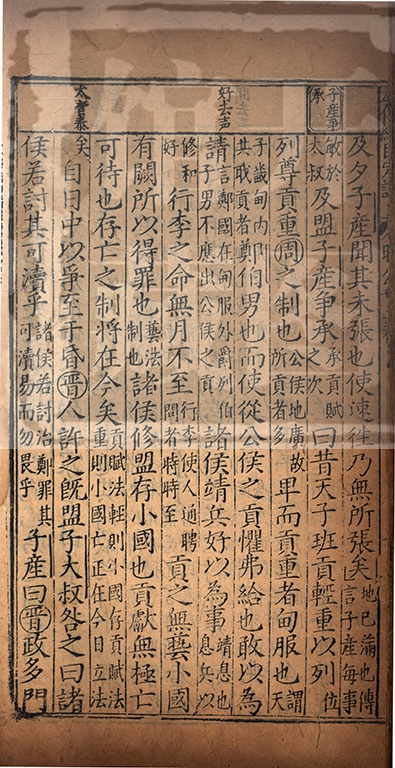 子產爭承
好去声
太音泰
及夕子產聞其未張也使速往乃無所張矣地已滿也傳言子產每事
敏於太叔及盟子產爭承承貢賦之次曰昔天子班貢輕重以列位
列尊貢重周之制也公侯地廣故所貢者多卑而貢重者甸服也謂天
子畿甸内其職貢者鄭伯男也而使從公侯之貢懼弗給也敢以為
請言鄭國在甸服外爵列伯子男不應出公侯之貢諸侯靖兵好以為事靖息也息兵以
脩和好行李之命無月不至行李使人通聘問者時時至貢之無藝小國
有闕所以得罪也藝法制也諸侯脩盟存小國也貢獻無極亡
可待也存亡之制將在今矣貢賦法輕則小國存貢賦法重則小國亡正在今日立法
矣自日中以爭至于昏晉人許之既盟子大叔咎之曰諸
侯若討其可瀆乎諸侯若討治鄭罪其可瀆易而勿畏乎子產曰晉政多門